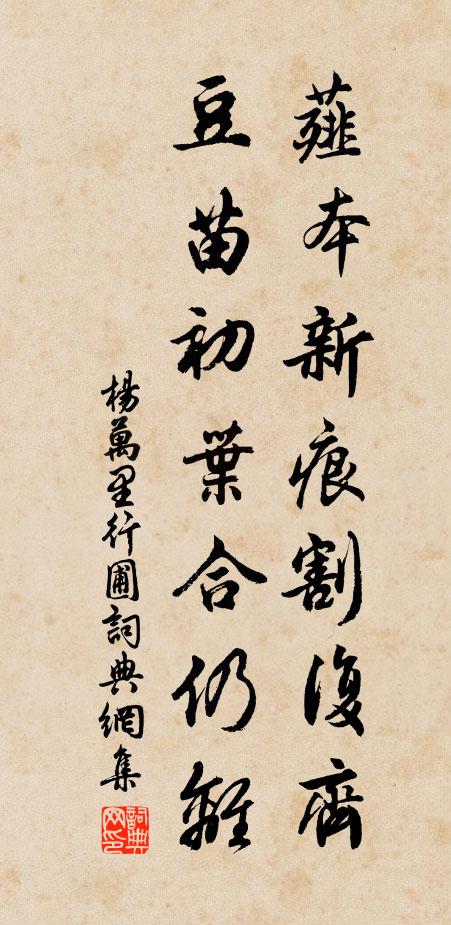 薤本新痕割復齊
豆苗初葉合仍離
楊萬里行圃詞典網集
詞典网印